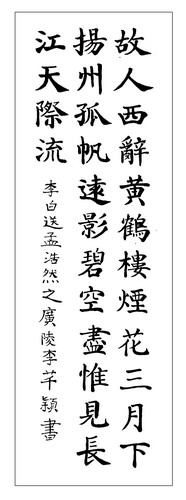 故人西辭黃鶴樓煙花三月下
揚州孤帆遠影碧空盡惟見長
江天際流
李白送孟浩然之廣陵李芊穎書